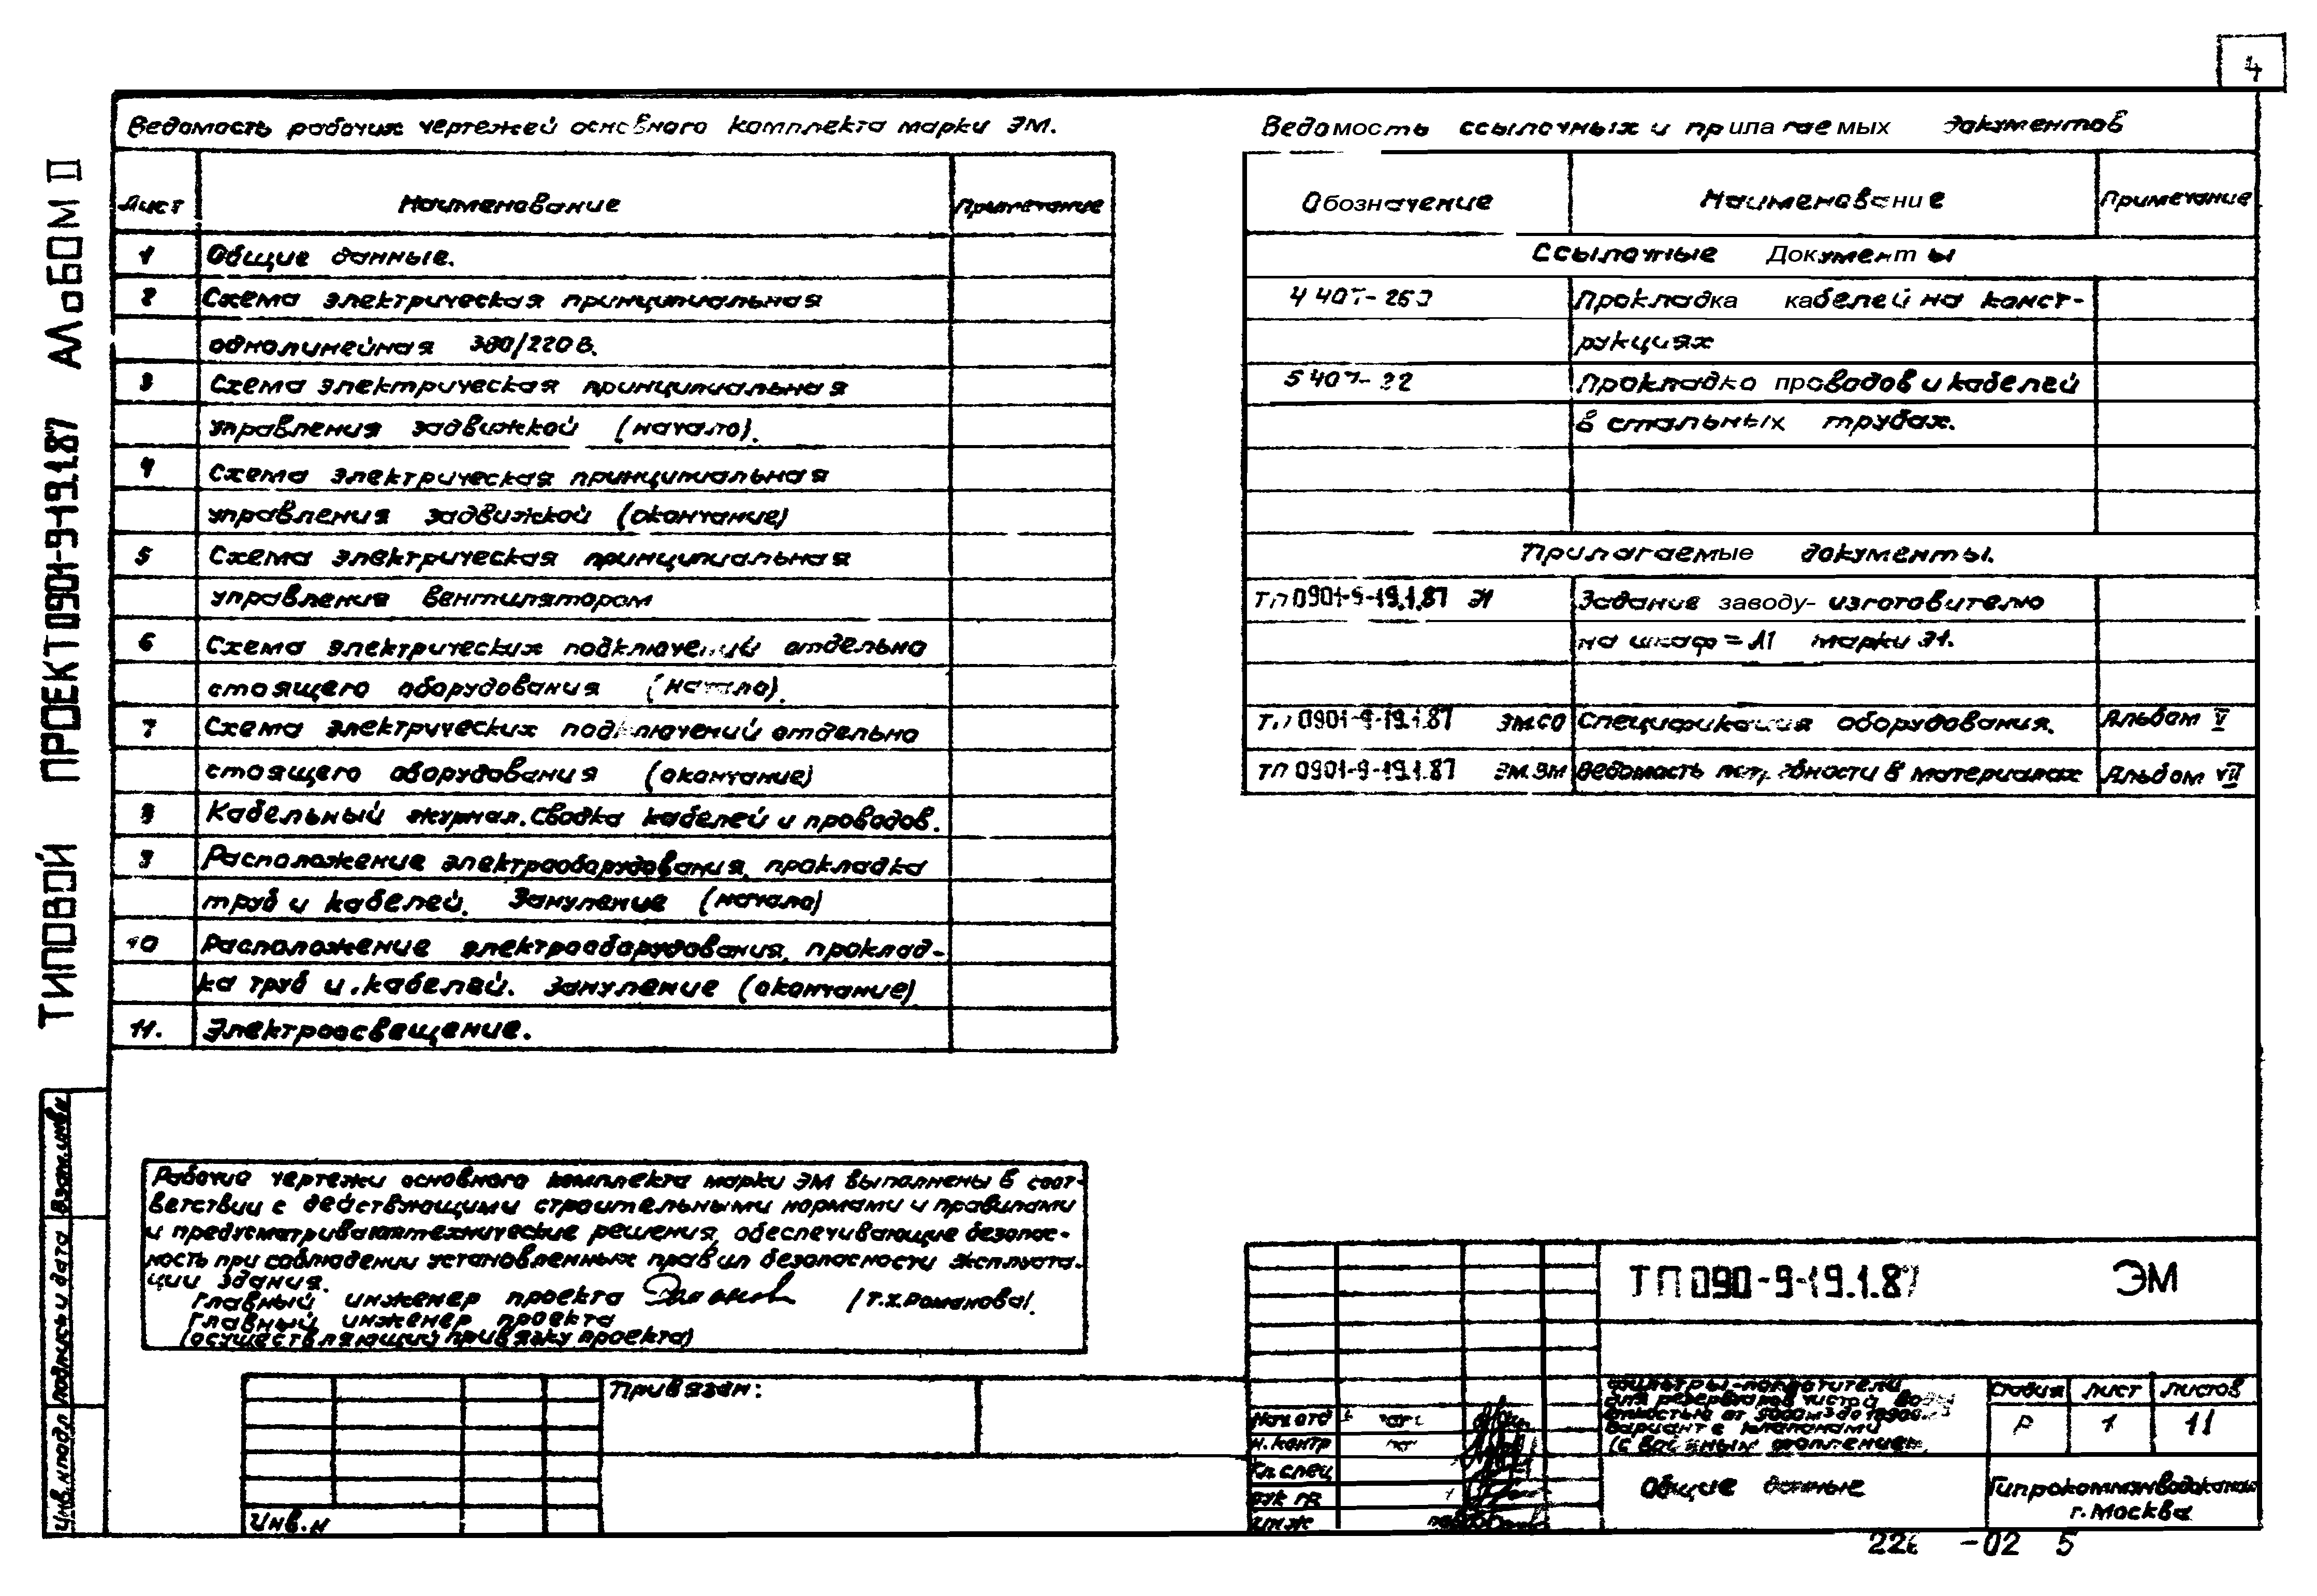 4
ТИПОВОЙ ПРОЕКТ 0901-9-19.1.87 АЛЬБОМ II
Ведомость рабочих чертежей основного комплекта марки ЭМ.
Лист Наименование Примечание
1 Общие данные.
2 Схема электрическая принципиальная
однолинейная 380/220В.
3 Схема электрическая принципиальная
управления задвижкой (начало).
4 Схема электрическая принципиальная
управления задвижкой (окончание)
5 Схема электрическая принципиальная
управления вентилятором
6 Схема электрических подключений отдельно
стоящего оборудования (начало).
7 Схема электрических подключений отдельно
стоящего оборудования (окончание)
8 Кабельный журнал. Сводка кабелей и проводов.
9 Расположение электрооборудования, прокладка
труб и кабелей. Зануление (начало)
10 Расположение электрооборудования, проклад-
ка труб и кабелей. Зануление (окончание)
11. Электроосвещение.
Ведомость ссылочных и прилагаемых документов
Обозначение Наименование Примечание
Ссылочные Документы
4 407-263 Прокладка кабелей на конст-
рукциях
5 407- Прокладка проводов и кабелей
в стальных трубах.
Прилагаемые документы.
ТП 0901-9-19.1.87 Задание заводу-изготовителю
на шкаф марки
ТП 0901-9-19.1.87 ЭМ.СО Спецификация оборудования. Альбом V
ТП 0901-9-19.1.87 ЭМ.ВМ Ведомость потребности в материалах Альбом VII
Рабочие чертежи основного комплекта марки ЭМ выполнены в соот-
ветствии с действующими строительными нормами и правилами
и предусматривают технические решения, обеспечивающие безопас-
ность при соблюдении установленных правил безопасности эксплуата-
ции здания.
Главный инженер проекта /Т.Х.Романова/.
Главный инженер проекта
(осуществляющий привязку проекта)
Привязан:
Инв.н
Инв.н подл Подпись и дата Взам.инв н
ТП 090-9-19.1.87 ЭМ
Фильтры-поглотители
для резервуаров чистой воды
емкостью от
Вариант с клапанами
(с водяным отоплением)
Стадия Лист Листов
Р 1 11
Нач отд
Н.контр
Гл.спец
Рук гр
Инж
Общие данные
Гипрокоммунводоканал
г.Москва
-02 5